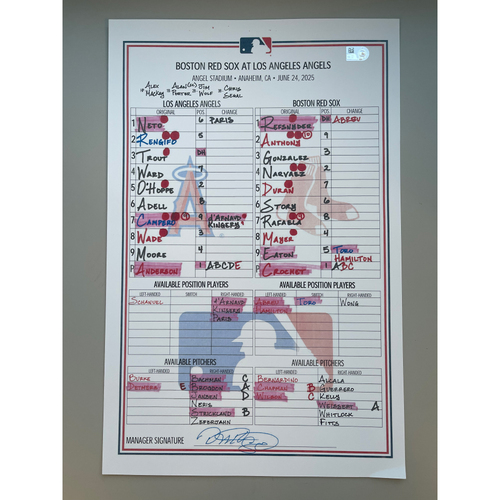 BOSTON RED SOX AT LOS ANGELES ANGELS
ANGEL STADIUM • ANAHEIM, CA • JUNE 24, 2025
ALEX MACKAY = ALAN PORTER = JIM WOLF = CHRIS SEGAL
LOS ANGELES ANGELS BOSTON RED SOX
ORIGINAL POS CHANGE ORIGINAL POS CHANGE
1 NETO 6 PARIS 1 REFSNYDER DH ABREU
2 RENGIFO 5 2 ANTHONY 9
3 TROUT DH 3 GONZALEZ 3
4 WARD 7 4 NARVAEZ 2
5 O'HOPPE 2 5 DURAN 7
6 ADELL 8 6 STORY 6
7 CAMPERO 9 d'ARNAUD KINGERY 7 RAFAELA 8
8 WADE 3 8 MAYER 4
9 MOORE 4 9 EATON 5 TORO HAMILTON
P ANDERSON 1 ABCDE P CROCHET 1 ABC
AVAILABLE POSITION PLAYERS AVAILABLE POSITION PLAYERS
LEFT HANDED SWITCH RIGHT HANDED LEFT HANDED SWITCH RIGHT HANDED
SCHANUEL d'ARNAUD ABREU TORO WONG
KINGERY HAMILTON
PARIS
AVAILABLE PITCHERS AVAILABLE PITCHERS
LEFT HANDED RIGHT HANDED LEFT HANDED RIGHT HANDED
BURKE BACHMAN C BERNARDINO ALCALA
DETMERS E BROGDON A CHAPMAN B GUERRERO
JANSEN D WILSON C KELLY
NERIS WEISSERT A
STRICKLAND B WHITLOCK
ZEFERJAHN FITTS
MANAGER SIGNATURE